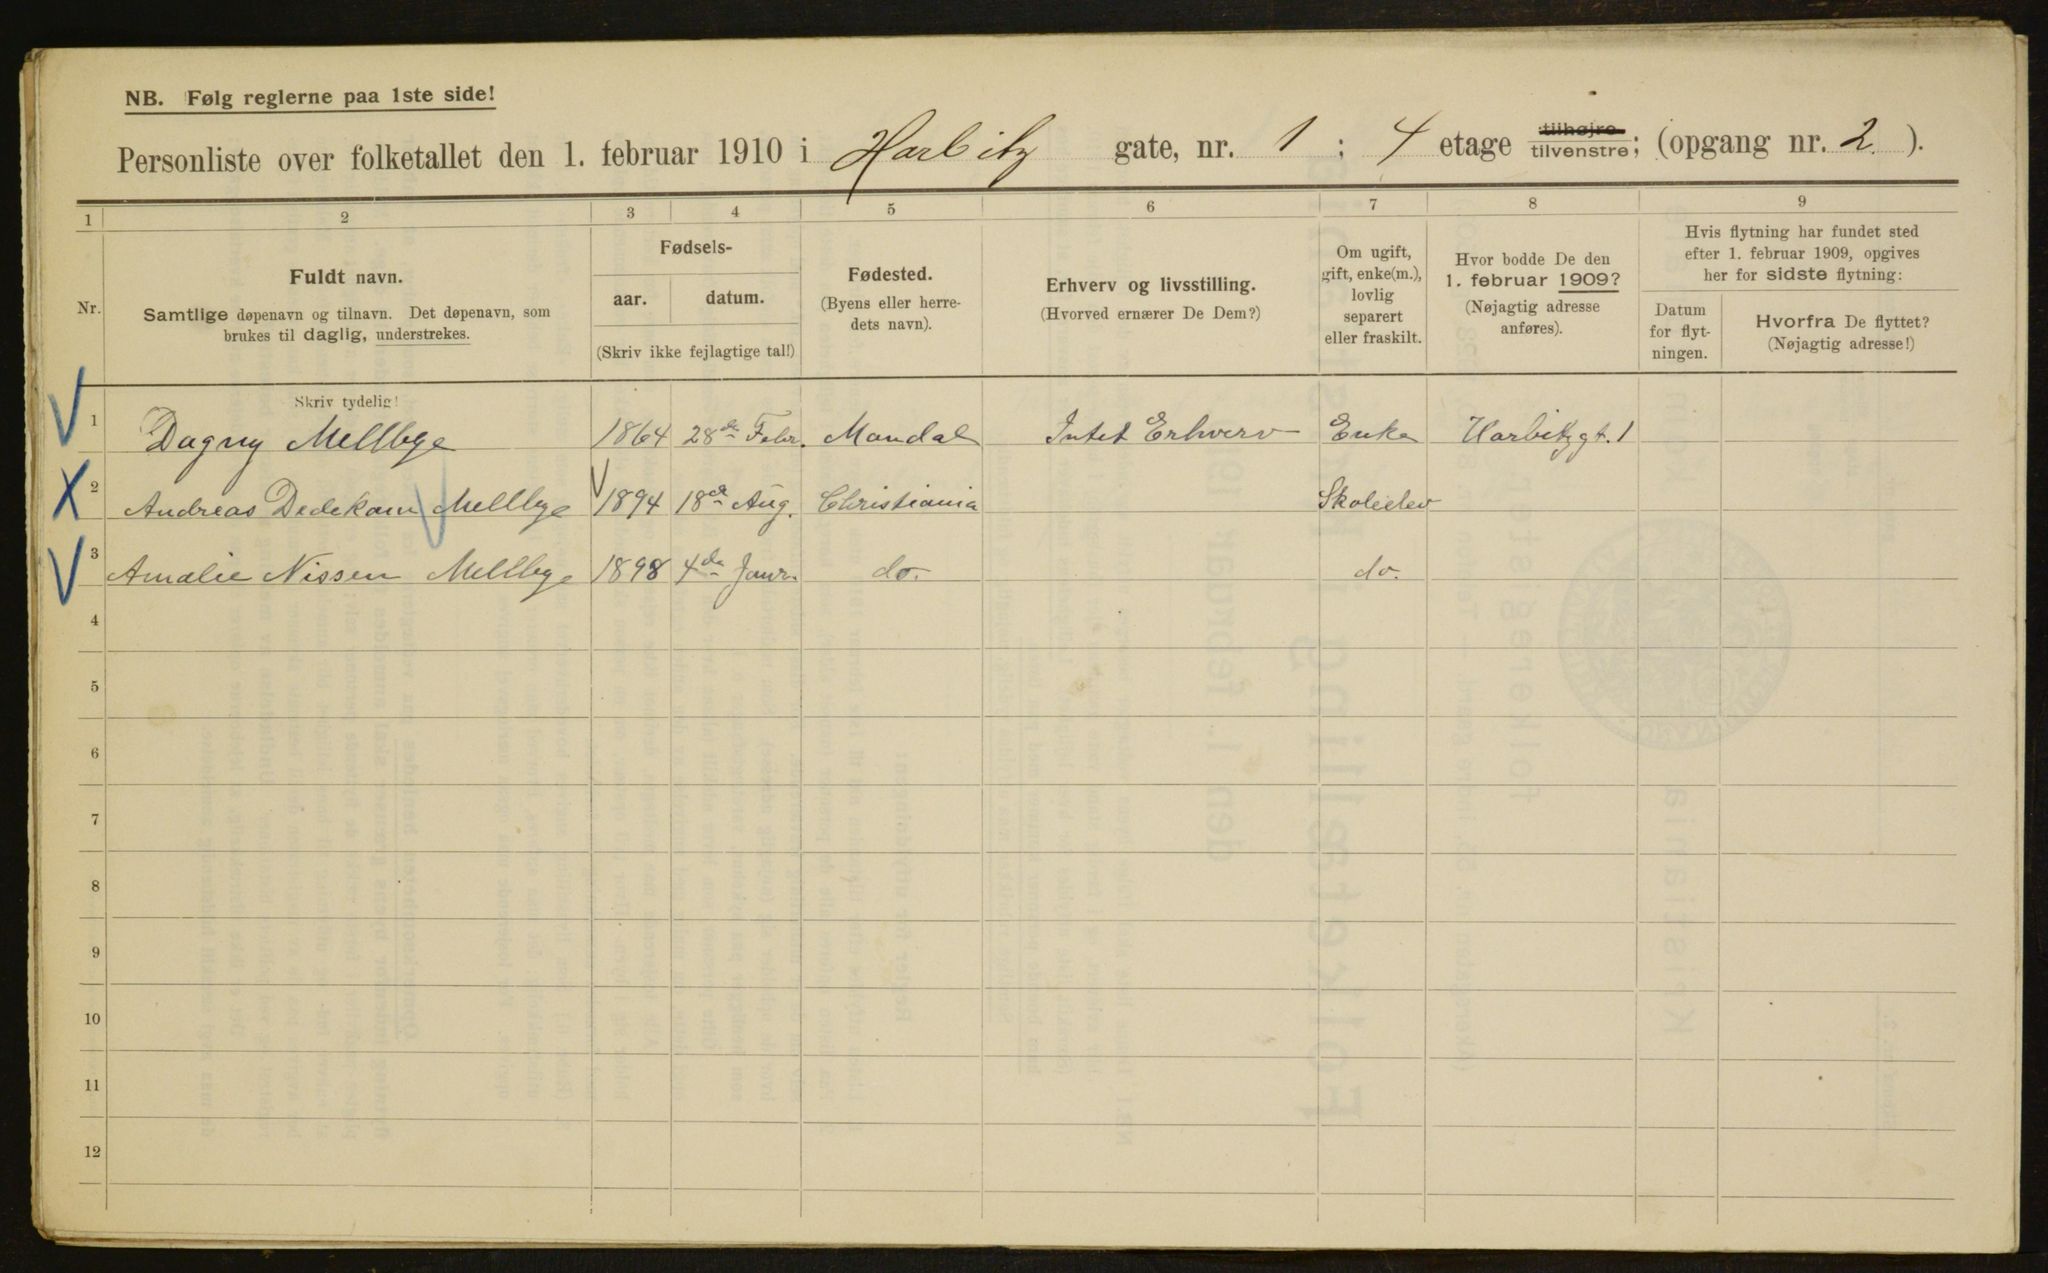 NB. Følg reglerne paa 1ste side!
Personliste over folketallet den 1. februar 1910 i Harbitz gate, nr. 1 ; 4 etage tilhøjre tilvenstre; (opgang nr. 2. ).
1 2 3 4 5 6 7 8 9
Nr.
Fuldt navn.
Samtlige døpenavn og tilnavn. Det døpenavn, som
brukes til daglig, understrekes.
Fødsels-
aar. datum.
(Skriv ikke fejlagtige tal!)
Fødested.
(Byens eller herre-
dets navn).
Erhverv og livsstilling.
(Hvorved ernærer De Dem?)
Om ugift,
gift, enke(m.),
lovlig
separert
eller fraskilt.
Hvor bodde De den
1. februar 1909?
(Nøjagtig adresse
anføres).
Hvis flytning har fundet sted
efter 1. februar 1909, opgives
her for sidste flytning:
Datum
for flyt-
ningen.
Hvorfra De flyttet?
(Nøjagtig adresse!)
Skriv tydelig!
1 Dagny Mellbye 1864 28de Febr. Mandal Intet Erhverv Enke Harbitzgt. 1
2 Andreas Dedekam Mellbye 1894 18de Aug. Christiania Skoleelev
3 Amalie Nissen Mellbye 1898 4de Janr. do. do.
4
5
6
7
8
9
10
11
12